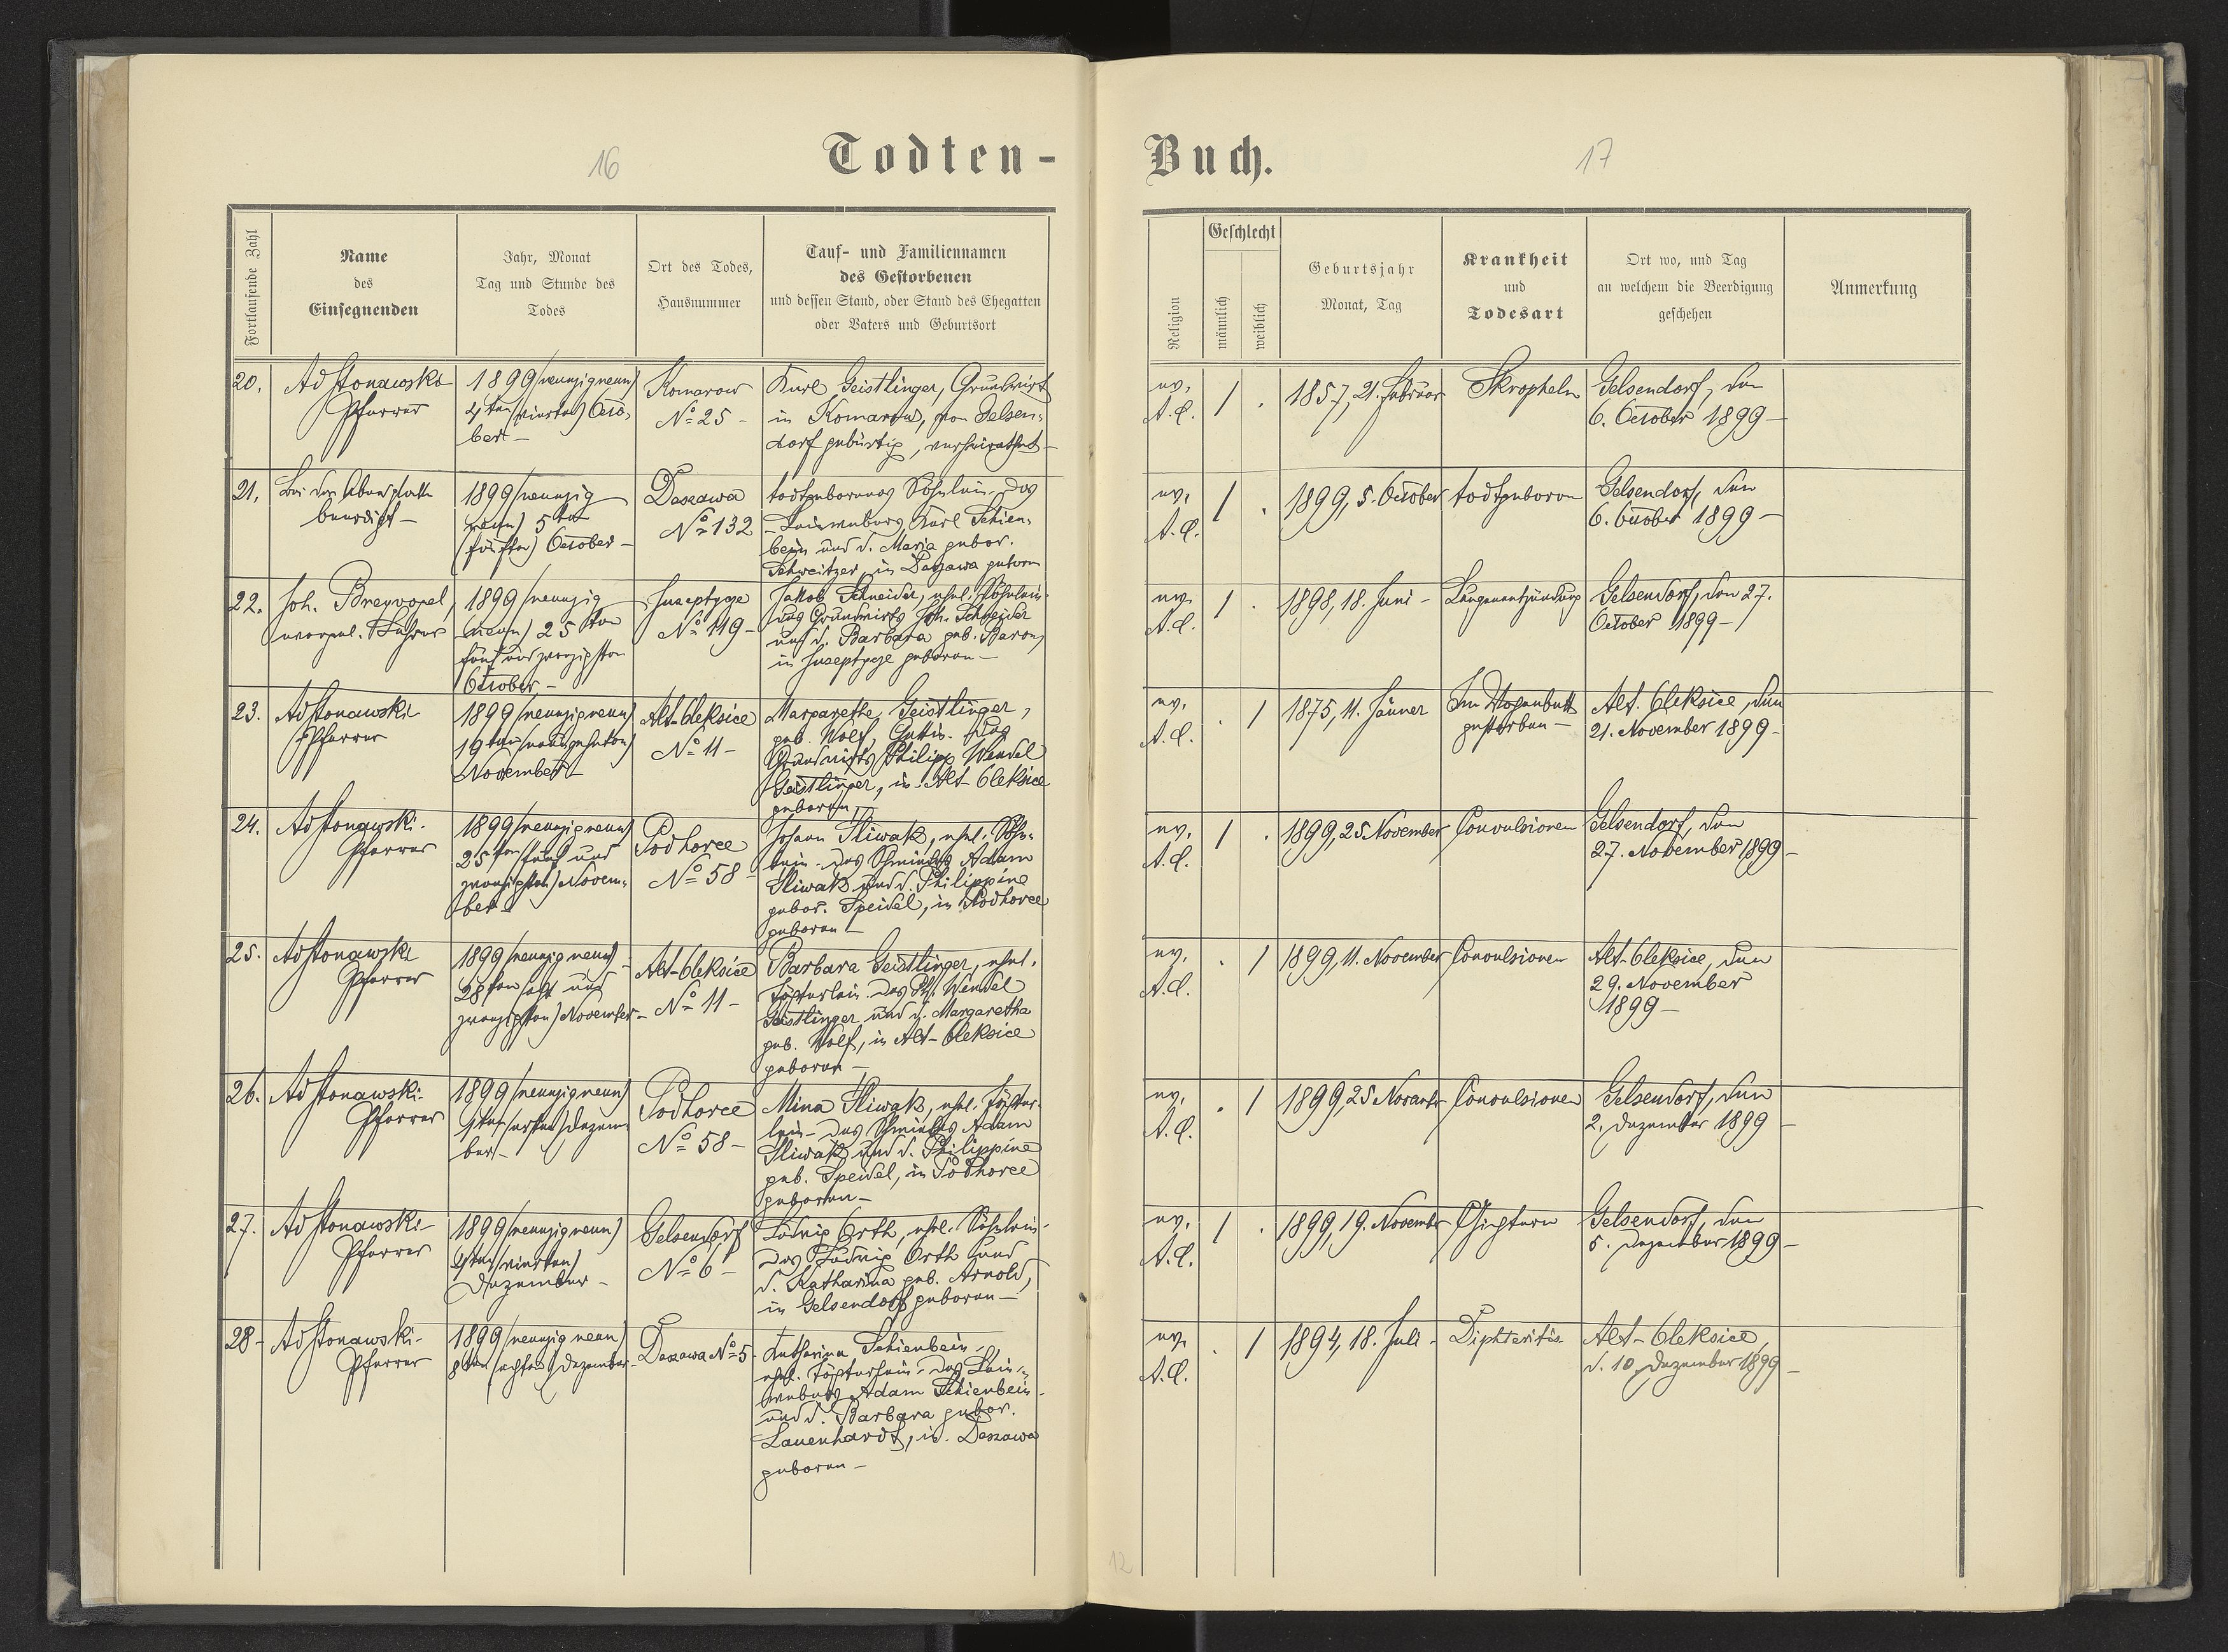 16
Todten-
Fortlaufende Zahl
Name
des
Einsegnenden
Jahr, Monat
Tag und Stunde des
Todes
Ort des Todes,
Hausnummer
Tauf- und Familiennamen
des Gestorbenen
und dessen Stand, oder Stand des Ehegatten
oder Vaters und Geburtsort
20.
Ad Stonawski
Pfarrer
1899 (neunzigneun)
4ten (vierten) Octo-
ber –
Komarow
No 25 –
Karl Geistlinger, Grundwirt
in Komarow, von Gelsen-
dorf gebürtig, verheirathet –
21.
beerdigt –
1899 (neunzig
neun) 5ten
(fünften) October –
Daszawa
No 132
todtgeborenes Söhnlein des
Karl Schien-
bein und d. Maria gebor.
Schweitzer, in Daszawa geboren
22.
Joh. Breyvogel,
evangel. Lehrer
1899 (neunzig
neun) 25sten
fünf und zwanzigsten
October –
Juseptycze
No 119 –
Jakob Schneider, ehel. Söhnlein
des Grundwirts Joh. Schneider
und d. Barbara geb. Baron,
in Juseptycze geboren –
23.
Ad Stonawski
Pfarrer
1899 (neunzigneun)
19ten (neunzehnten)
November –
Alt-Oleksice
No 11 –
Margarethe Geistlinger,
geb. Wolf, Gattin des
Grundwirts Philipp Wendel
Geistlinger, in Alt-Oleksice
geboren –
24.
Ad Stonawski
Pfarrer
1899 (neunzigneun)
25ten (fünf und
zwanzigsten) Novem-
ber –
Podhorce
No 58 –
Johann Sliwak, ehel. Söhn-
lein des Schmiedes Adam
Sliwak und d. Philippine
gebor. Speidel, in Podhorce
geboren –
25.
Ad Stonawski
Pfarrer
1899 (neunzig neun)
28ten (acht und
zwanzigsten) November –
Alt-Oleksice
No 11 –
Barbara Geistlinger, ehel.
Töchterlein des Ph. Wendel
Geistlinger und d. Margaretha
geb. Wolf, in Alt-Oleksice
geboren –
26.
Ad Stonawski
Pfarrer
1899 (neunzigneun)
1ten (ersten) Dezem-
ber –
Podhorce
No 58 –
Mina Sliwak, ehel. Töchter-
lein des Schmiedes Adam
Sliwak und d. Philippine
geb. Speidel, in Podhorce
geboren –
27.
Ad Stonawski
Pfarrer
1899 (neunzigneun)
4ten (vierten)
Dezember –
Gelsendorf
No 6 –
Ludwig Orth, ehel. Söhnlein
des Ludwig Orth und
d. Katharina geb. Arnold,
in Gelsendorf geboren –
28.
Ad Stonawski
Pfarrer
1899 (neunzig neun)
8ten (achten) Dezember –
Daszawa No 5
Katharina Schienbein,
ehel. Töchterlein des Lein-
webers Adam Schienbein
und d. Barbara gebor.
Lauenhardt, in Daszawa
geboren –
Buch.
17
Religion
Geschlecht
männlich
weiblich
Geburtsjahr
Monat, Tag
Krankheit
und
Todesart
Ort wo, und Tag
an welchem die Beerdigung
geschehen
Anmerkung
ev.
A.C.
1
.
1857, 21. Februar
Skropheln
Gelsendorf, den
6. October 1899 –
ev.
A.C.
1
.
1899, 5. October
todtgeboren
Gelsendorf, den
6. October 1899 –
ev.
A.C.
1
.
1898, 18. Juni –
Lungenentzündung
Gelsendorf, den 27.
October 1899 –
ev.
A.C.
.
1
1875, 11. Jänner
Im Wochenbett
gestorben –
Alt-Oleksice, den
21. November 1899 –
ev.
A.C.
1
.
1899, 25 November
Convulsionen
Gelsendorf, den
27. November 1899 –
ev.
A.C.
.
1
1899, 11. November
Convulsionen
Alt-Oleksice, den
29. November
1899 –
ev.
A.C.
.
1
1899, 25 November
Convulsionen
Gelsendorf, den
2. Dezember 1899 –
ev.
A.C.
1
.
1899, 19. November
Gichtern
Gelsendorf, den
5. Dezember 1899 –
ev.
A.C.
.
1
1894, 18. Juli –
Diphteritis
Alt-Oleksice,
d. 10. Dezember 1899 –
12